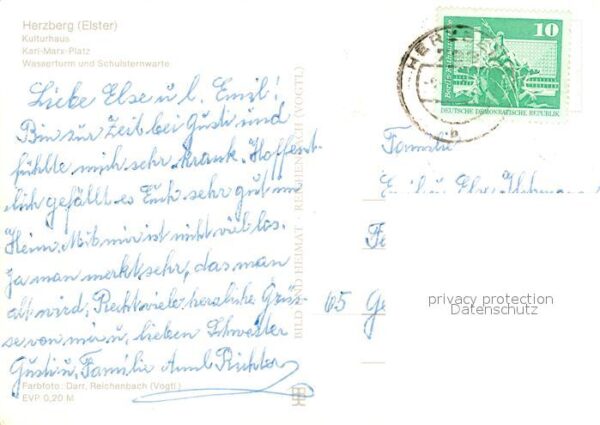 Herzberg (Elster)
Kulturhaus
Karl-Marx-Platz
Wasserturm und Schulsternwarte
Liebe Else u. l. Emil!
Bin zur Zeit bei Gusti und
fühlte mich sehr krank. Hoffent-
lich gefällt es Euch sehr gut im
Heim. Mit mir ist nicht viel los.
Ja man merkt sehr, das man
alt wird, Recht viele herzliche Grüs-
se von mir u. lieben Schwester
Gusti u. Familie Richter
Farbfoto: Darr, Reichenbach (Vogtl.)
EVP 0,20 M
BILD UND HEIMAT REICHENBACH (VOGTL)
HERZBERG
b
10
DEUTSCHE DEMOKRATISCHE REPUBLIK
Familie
Emil u. Else
65 Ge
privacy protection
Datenschutz